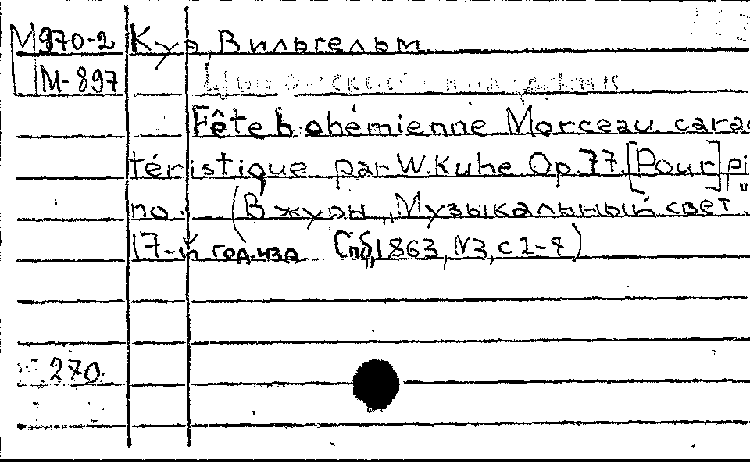 М970-2 Куэ, Вильгельм
М-897
Fête bohémienne Morceau carac
téristique par W. Kuhe Op. 77. [Pour] pi
no. (В журн „Музыкальный свет."
17-й год изд Спб, 1863, N3, с 2-8)
270